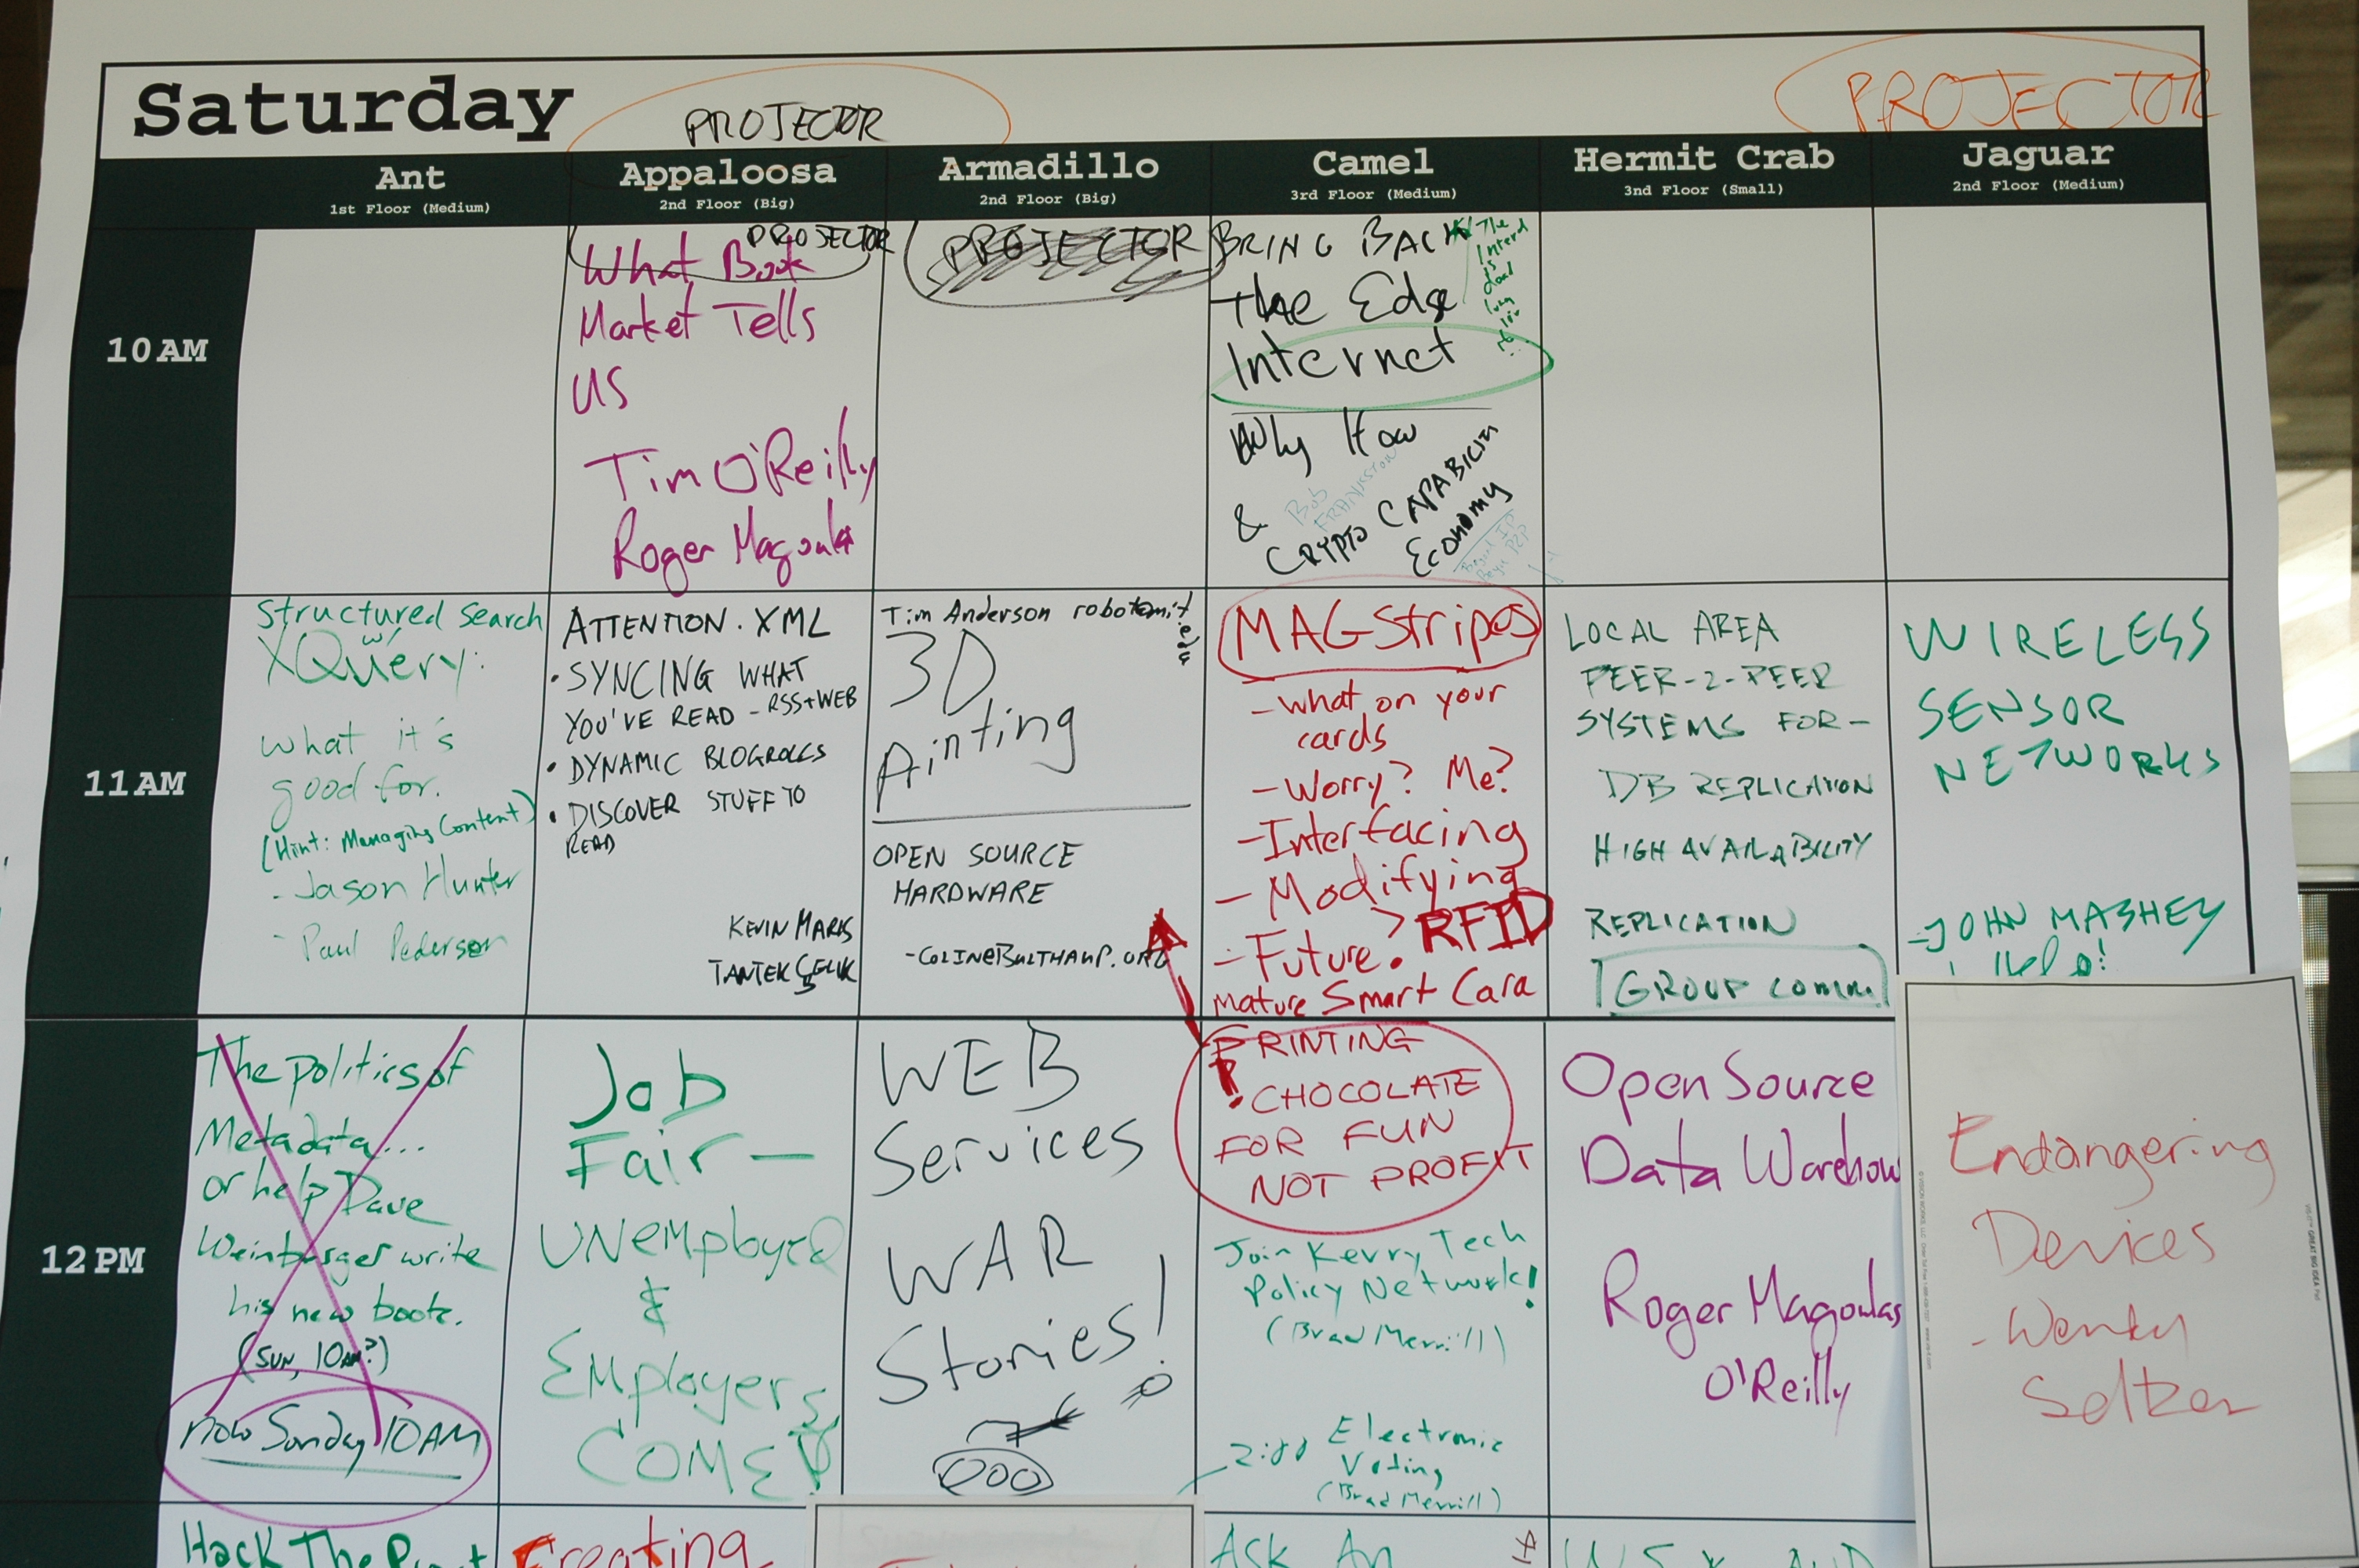 Saturday
PROJECTOR
PROJECTOR
Ant
1st Floor (Medium)
Appaloosa
2nd Floor (Big)
Armadillo
2nd Floor (Big)
Camel
3rd Floor (Medium)
Hermit Crab
3nd Floor (Small)
Jaguar
2nd Floor (Medium)
10 AM
PROJECTOR
What Book
Market Tells
US
Tim O'Reilly
Roger Magoula
PROJECTOR
BRING BACK
the Edge
Internet
The
is
dead
long
Why How
&
Bob
FRANKSTON
CRYPTO CAPABILITY
Economy
Beyond IP
P2P
11 AM
Structured Search
w/
XQuery:
what it's
good for.
(Hint: Managing Content)
- Jason Hunter
- Paul Pederson
ATTENTION.XML
• SYNCING WHAT
YOU'VE READ - RSS+WEB
• DYNAMIC BLOGROLLS
• DISCOVER STUFF TO
READ
KEVIN MARKS
TANTEK ÇELIK
Tim Anderson robot@mit.edu
3D
Printing
OPEN SOURCE
HARDWARE
-COLIN@BULTHAUP.ORG
MAGStripes
- what on your
cards
- Worry? Me?
- Interfacing
- Modifying
- Future? > RFID
Mature Smart Card
LOCAL AREA
PEER-2-PEER
SYSTEMS FOR-
DB REPLICATION
HIGH AVAILABILITY
REPLICATION
GROUP comm.
WIRELESS
SENSOR
NETWORKS
- JOHN MASHEY
Help!
12 PM
The politics of
Metadata...
or help Dave
Weinberger write
his new book.
(SUN, 10AM?)
now Sunday 10AM
Job
Fair —
UNemployed
&
Employers,
COME
WEB
Services
WAR
Stories!
PRINTING
CHOCOLATE
FOR FUN
NOT PROFIT
Join Kerry Tech
Policy Network!
(Brad Merrill)
2:00 Electronic
Voting
(Brad Merrill)
Open Source
Data Warehou
Roger Magoulas
O'Reilly
Endangering
Devices
- Wendy
Seltzer
Hack The
Creating
Ask An